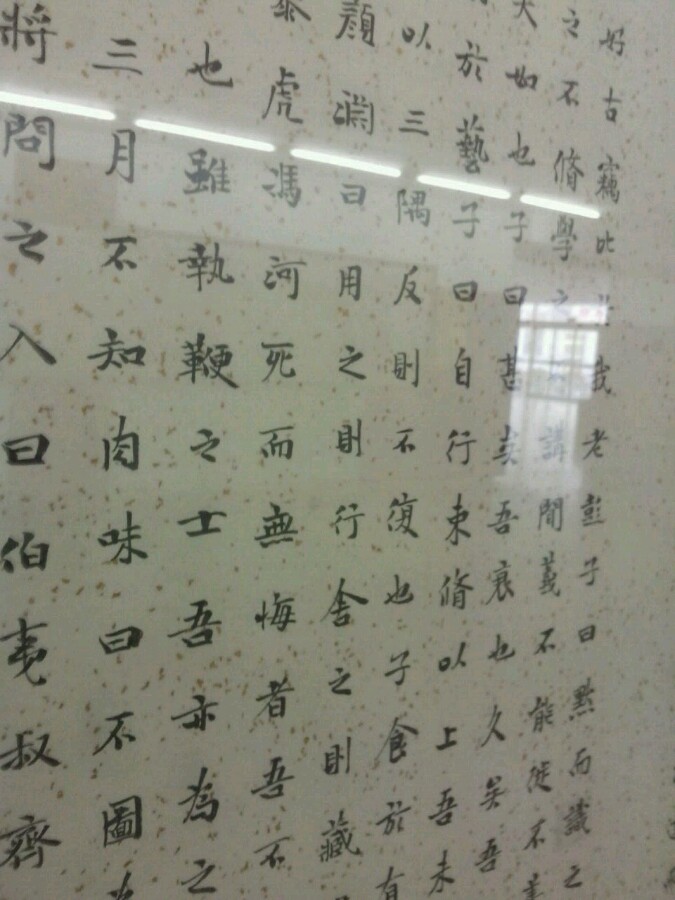 好古竊比 我老彭子曰默而識之
之不脩學之 講聞義不能徙不
夭如也子曰甚矣吾衰也久矣吾
於藝子曰自行束脩以上吾未
以三隅反則不復也子食於有
顏淵曰用之則行舍之則藏
暴虎馮河死而無悔者吾不
也雖執鞭之士吾亦為之
三月不知肉味曰不圖為
將問之入曰伯夷叔齊